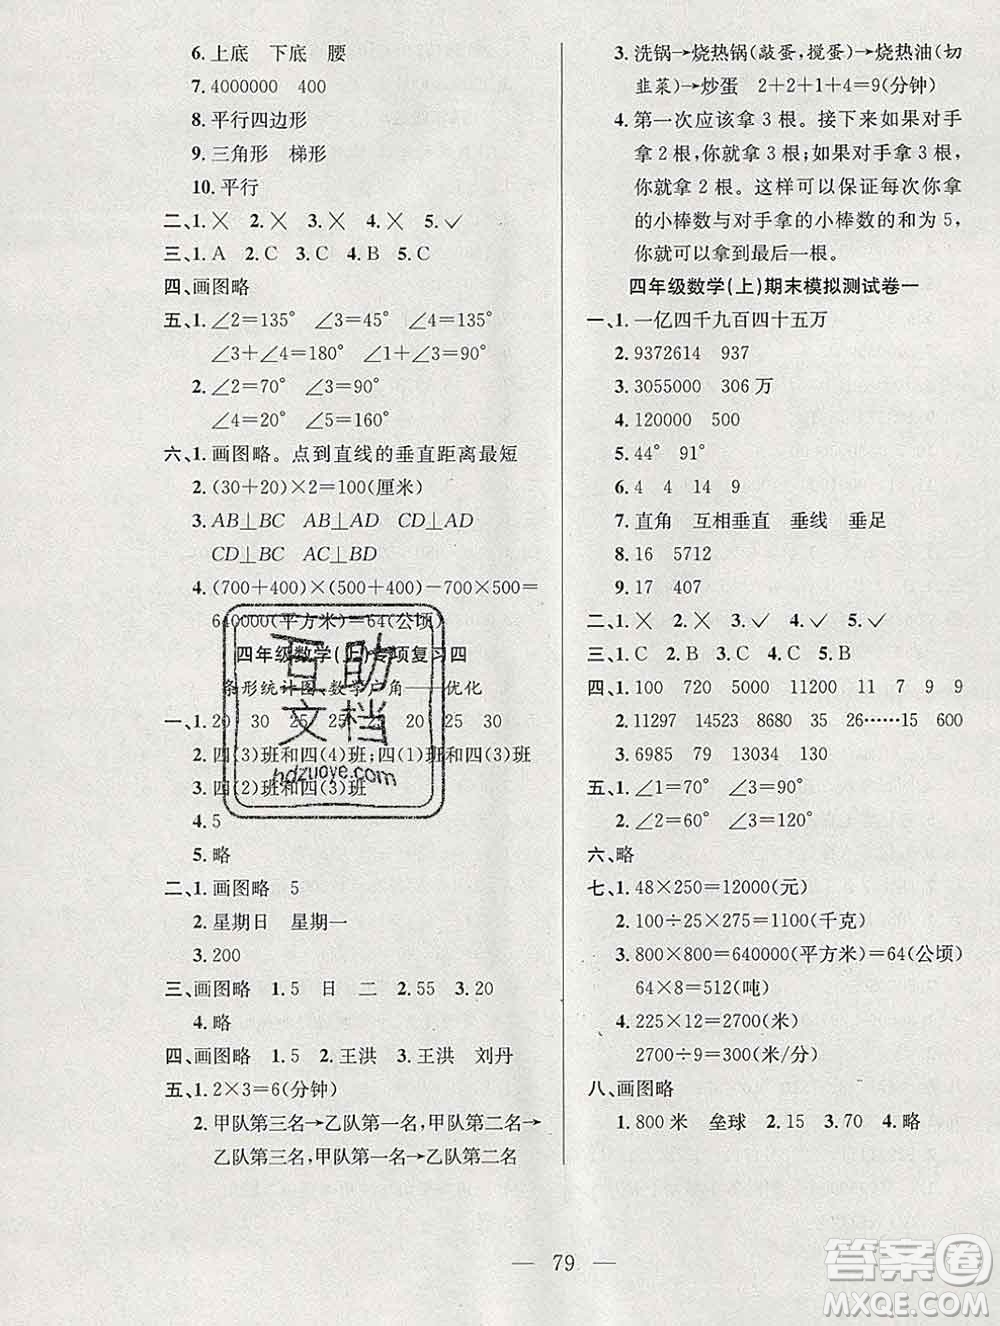 6.上底 下底 腰
7.4000000 400
8.平行四边形
9.三角形 梯形
10.平行
二、1.× 2.× 3.× 4.× 5.✓
三、1.A 2.C 3.C 4.B 5.C
四、画图略
五、1.∠2=135° ∠3=45° ∠4=135°
∠3+∠4=180° ∠1+∠2=180°
2.∠2=70° ∠3=20°
∠4=20° ∠5=160°
六、1.画图略。点到直线的垂直距离最短
2.(30+20)×2=100(厘米)
3.AB⊥BC AB⊥AD CD⊥AD
CD⊥BC AC⊥BD
4.(700+400)×(500+400)-700×500=
640000(平方米)=64(公顷)
四年级数学(上)专项复习四
条形统计图、数学广角——优化
一、1.20 30 25 25 20 25 30
2.四(3)班和四(4)班;四(1)班和四(3)班
3.四(2)班和四(3)班
4.5
5.略
二、1.画图略 5
2.星期日 星期一
3.200
三、画图略 1.5 日 二 2.55 3.20
4.略
四、画图略 1.5 2.王洪 3.王洪 刘丹
五、1.2×3=6(分钟)
2.甲队第三名→乙队第一名,甲队第二名→
乙队第三名,甲队第一名→乙队第二名
3.洗锅→烧热锅(敲蛋,搅蛋)→烧热油(切
韭菜)→炒蛋 2+2+1+4=9(分钟)
4.第一次应该拿3根。接下来如果对手
拿2根,你就拿3根;如果对手拿3根,
你就拿2根。这样可以保证每次你拿
的小棒数与对手拿的小棒数的和为5,
你就可以拿到最后一根。
四年级数学(上)期末模拟测试卷一
一、1.一亿四千九百四十五万
2.9372614 937
3.3055000 306万
4.120000 500
5.44° 91°
6.4 4 14 9
7.直角 互相垂直 垂线 垂足
8.16 5712
9.17 407
二、1.× 2.× 3.× 4.✓ 5.✓
三、1.C 2.B 3.B 4.C 5.B
四、1.100 720 5000 12000 11 7 9 9
2.11297 14523 8680 35 26……15 600
3.6985 79 13034 130
五、1.∠1=70° ∠3=90°
2.∠2=60° ∠3=120°
六、略
七、1.48×250=12000(元)
2.100÷25×275=1100(千克)
3.800×800=640000(平方米)=64(公顷)
64×8=512(吨)
4.225×12=2700(米)
2700÷9=300(米/分)
八、画图略
1.800米 垒球 2.15 3.70 4.略
互助
文档
hdzuoye.com
— 79 —
答案圈
MXQE.COM